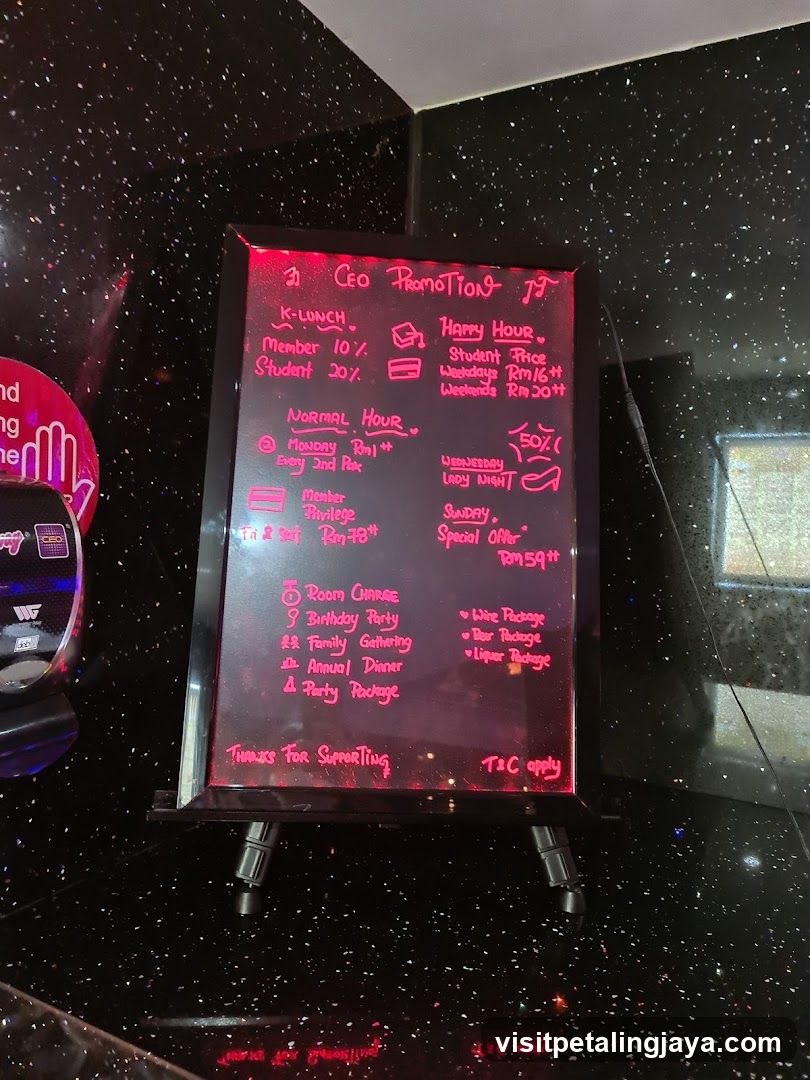 CEO PROMOTION
K-LUNCH
Member 10%
Student 20%
HAPPY HOUR
Student Price
Weekdays Rm16++
Weekends Rm20++
NORMAL HOUR
MONDAY Rm1++
Every 2nd Pax
Member
Privilege
Fri & Sat Rm78++
50%
WEDNESDAY
LADY NIGHT
SUNDAY
Special Offer*
Rm59++
ROOM CHARGE
Birthday Party
Family Gathering
Annual Dinner
Party Package
Wine Package
Beer Package
Liquor Package
THANKS FOR SUPPORTING
T&C apply
CEO
visitpetalingjaya.com